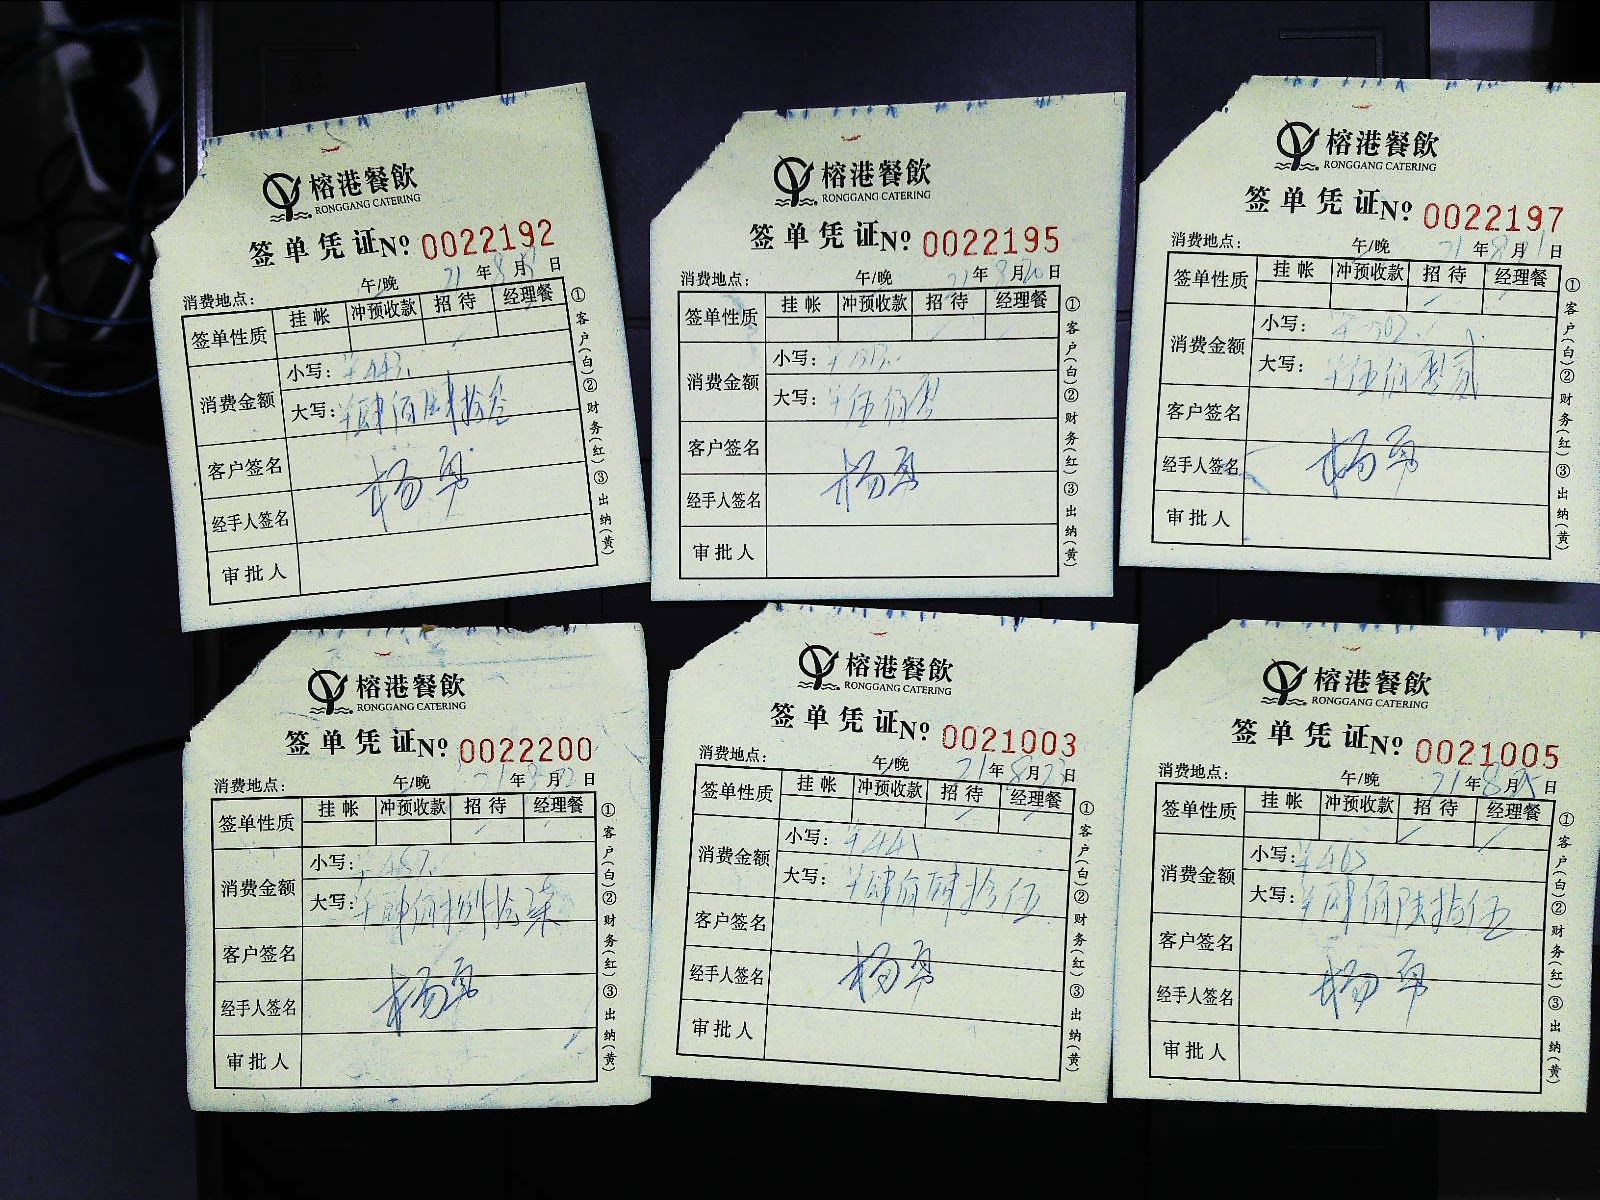 榕港餐飲
RONGGANG CATERING
签单凭证№ 0022192
消费地点: 午/晚 21年8月日
签单性质 挂帐 冲预收款 招待 经理餐
消费金额 小写: ¥443.
大写: ¥肆佰肆拾叁
客户签名
经手人签名 杨勇
审批人
①客户(白)②财务(红)③出纳(黄)
榕港餐飲
RONGGANG CATERING
签单凭证№ 0022195
消费地点: 午/晚 21年8月20日
签单性质 挂帐 冲预收款 招待 经理餐
消费金额 小写:
大写: ¥伍佰
客户签名
经手人签名 杨勇
审批人
①客户(白)②财务(红)③出纳(黄)
榕港餐飲
RONGGANG CATERING
签单凭证№ 0022197
消费地点: 午/晚 21年8月日
签单性质 挂帐 冲预收款 招待 经理餐
消费金额 小写: ¥502.
大写: ¥伍佰零贰
客户签名
经手人签名 杨勇
审批人
①客户(白)②财务(红)③出纳(黄)
榕港餐飲
RONGGANG CATERING
签单凭证№ 0022200
消费地点: 午/晚 21年8月22日
签单性质 挂帐 冲预收款 招待 经理餐
消费金额 小写:
大写: ¥肆佰拾柒
客户签名
经手人签名 杨勇
审批人
①客户(白)②财务(红)③出纳(黄)
榕港餐飲
RONGGANG CATERING
签单凭证№ 0021003
消费地点: 午/晚 21年8月23日
签单性质 挂帐 冲预收款 招待 经理餐
消费金额 小写: ¥445
大写: ¥肆佰肆拾伍
客户签名
经手人签名 杨勇
审批人
①客户(白)②财务(红)③出纳(黄)
榕港餐飲
RONGGANG CATERING
签单凭证№ 0021005
消费地点: 午/晚 21年8月25日
签单性质 挂帐 冲预收款 招待 经理餐
消费金额 小写: ¥465
大写: ¥肆佰陆拾伍
客户签名
经手人签名 杨勇
审批人
①客户(白)②财务(红)③出纳(黄)